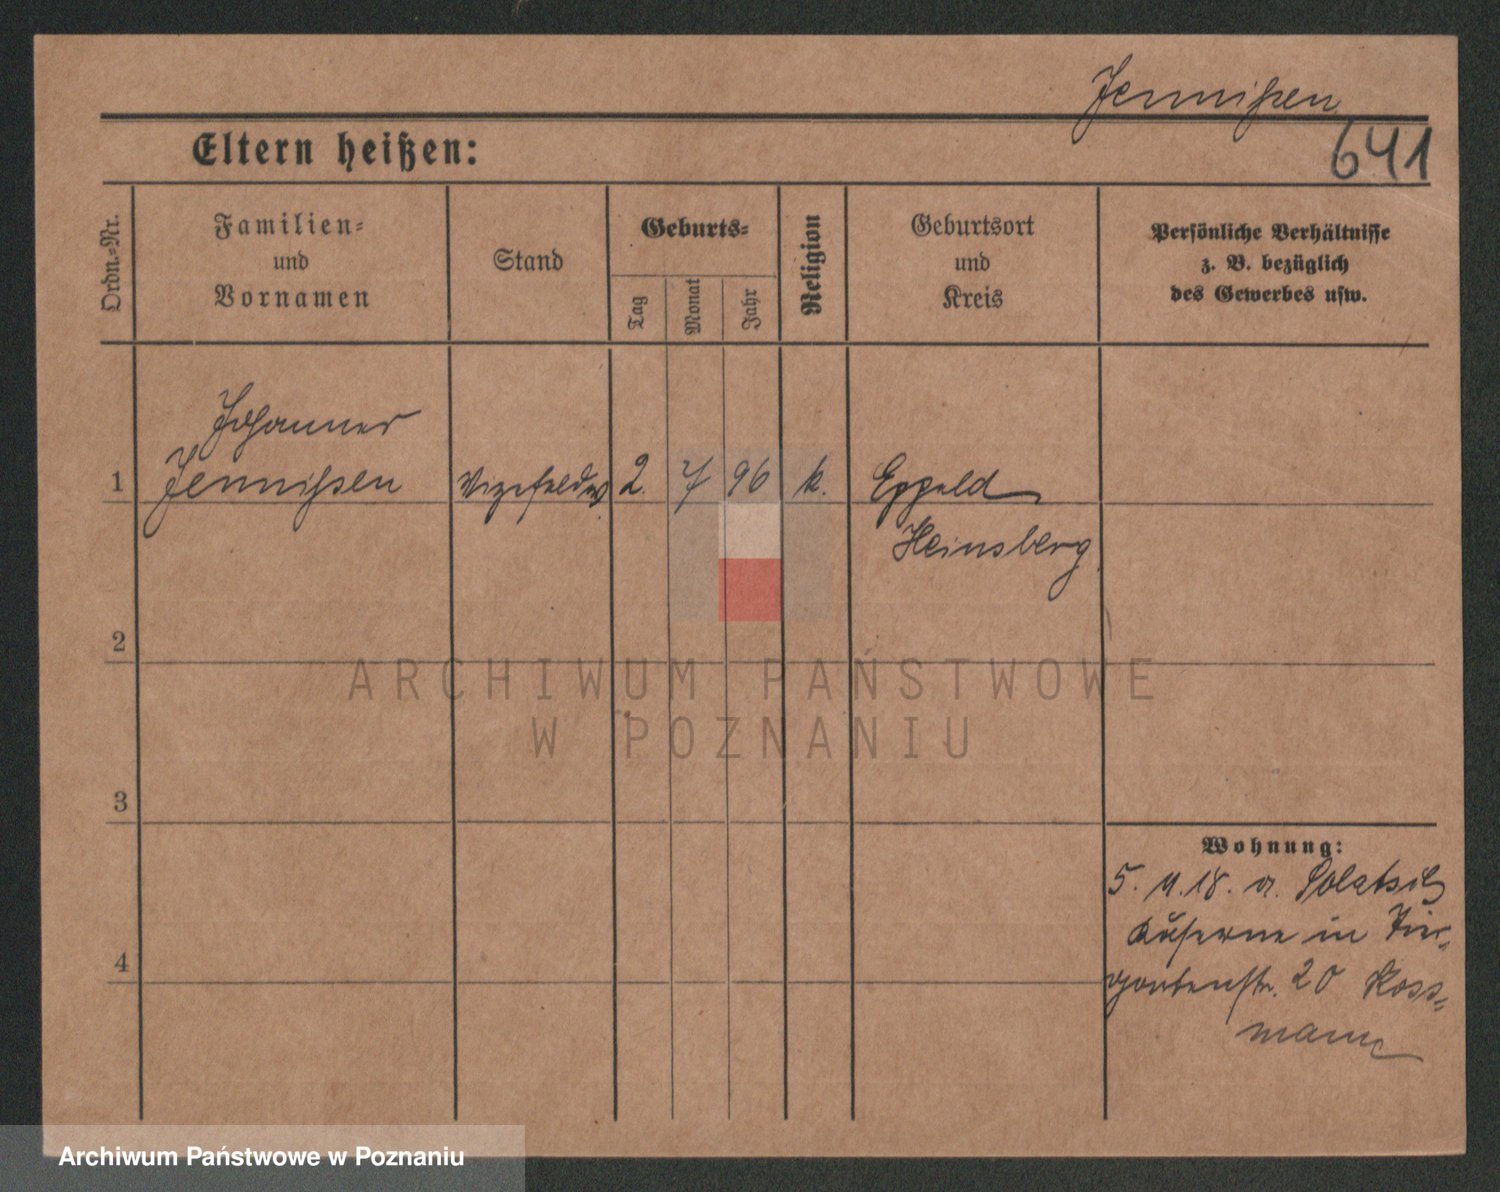 Jennißen
641
Eltern heißen:
Ordn.-Nr.
Familien-
und
Vornamen
Stand
Geburts-
Tag
Monat
Jahr
Religion
Geburtsort
und
Kreis
Persönliche Verhältnisse
z. B. bezüglich
des Gewerbes usw.
Johannes
1 Jennißen Vizefeldw. 2. 7 96 k.
Heinsberg
2
3
4
Wohnung:
5. 11. 18. a.
in Tier-
gartenstr. 20 Ross-
mann
ARCHIWUM PAŃSTWOWE
W POZNANIU
Archiwum Państwowe w Poznaniu